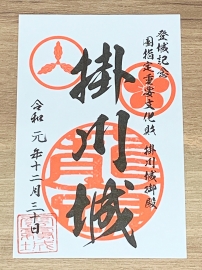 登城記念
国指定重要文化財 掛川城御殿
掛川城
令和元年十二月三十日